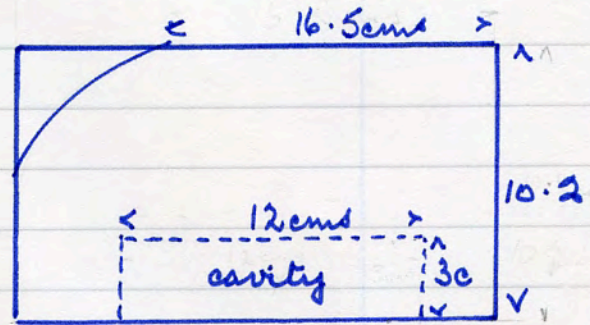 16.5cms
10.2
12cms
cavity 3c